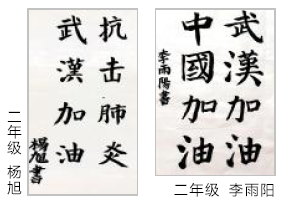 抗击肺炎
武漢加油
楊旭書
二年级 杨旭
武漢加油
中國加油
李雨陽書
二年级 李雨阳